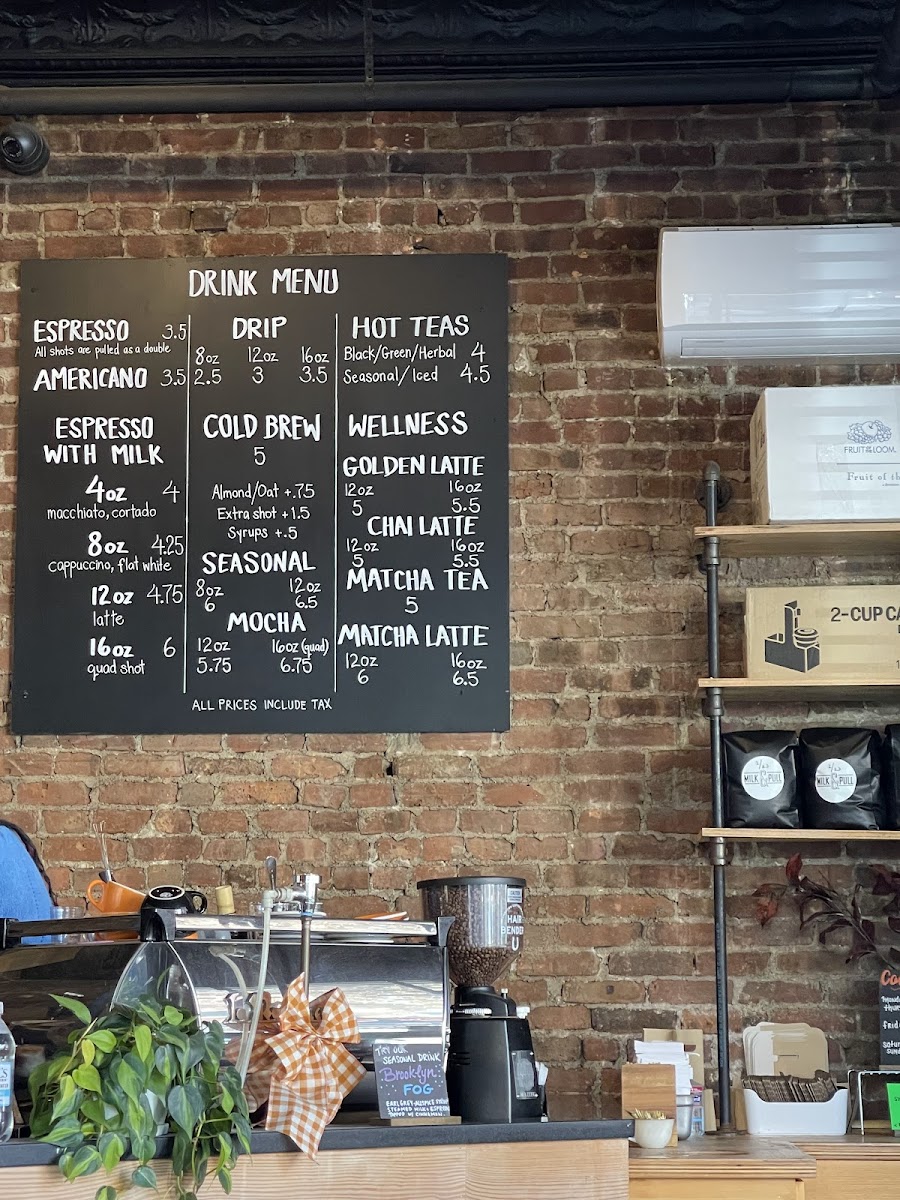 DRINK MENU
ESPRESSO 3.5
All shots are pulled as a double
AMERICANO 3.5
ESPRESSO
WITH MILK
4oz 4
macchiato, cortado
8oz 4.25
cappuccino, flat white
12oz 4.75
latte
16oz 6
quad shot
DRIP
8oz 12oz 16oz
2.5 3 3.5
COLD BREW
5
Almond/Oat +.75
Extra shot +1.5
Syrups +.5
SEASONAL
8oz 12oz
6 6.5
MOCHA
12oz 16oz (quad)
5.75 6.75
HOT TEAS
Black/Green/Herbal 4
Seasonal/Iced 4.5
WELLNESS
GOLDEN LATTE
12oz 16oz
5 5.5
CHAI LATTE
12oz 16oz
5 5.5
MATCHA TEA
5
MATCHA LATTE
12oz 16oz
6 6.5
ALL PRICES INCLUDE TAX
FRUIT OF THE LOOM.
Fruit of th
2-CUP CA
MILK & PULL
MILK & PULL
HAIR
BENDER
TRY OUR
SEASONAL DRINK
Brooklyn
FOG
STEAMED MILK + ESPRESSO